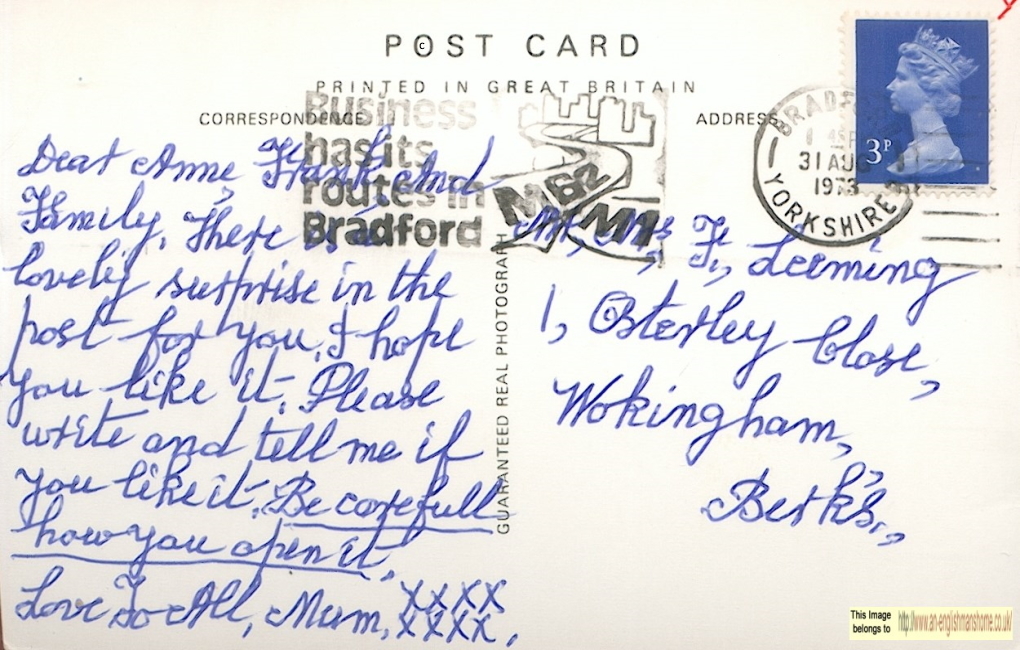 POST CARD
PRINTED IN GREAT BRITAIN
CORRESPONDENCE
ADDRESS
Business
has its
routes in
Bradford
M62
M1
BRADFORD
31 AUG
1973
YORKSHIRE
3P
Dear Anne, Frank, And
Family, There is a
lovely surprise in the
post for you, I hope
you like it. Please
write and tell me if
you like it. Be carefull
how you open it.
Love To All, Mum, xxxx
xxxx,
GUARANTEED REAL PHOTOGRAPH
Mr, Mrs, F, Leeming
1, Osterley Close,
Wokingham,
Berks,
This Image
belongs to
http://www.an-englishmanshome.co.uk/